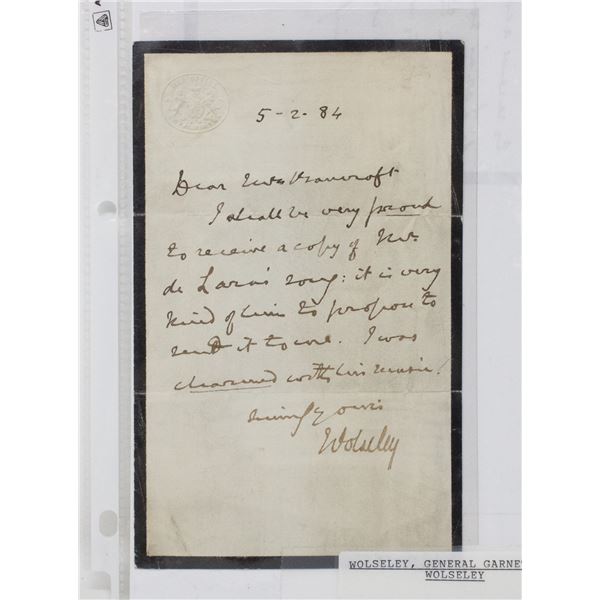 5-2-84
Dear Mrs Bancroft
I shall be very proud
to receive a copy of Mr.
de Lara's song: it is very
kind of him to propose to
send it to me. I was
charmed with his music.
yours
Wolseley
WOLSELEY, GENERAL GARNE
WOLSELEY